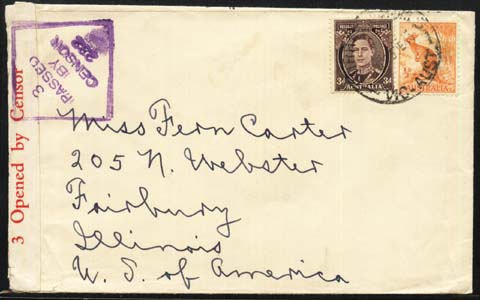 3 Opened by Censor
3
PASSED
BY
CENSOR
3d
AUSTRALIA
3d
½d
AUSTRALIA
VIC. AUST
Miss Fern Carter
205 N. Webster
Fairbury
Illinois
U. S. of America